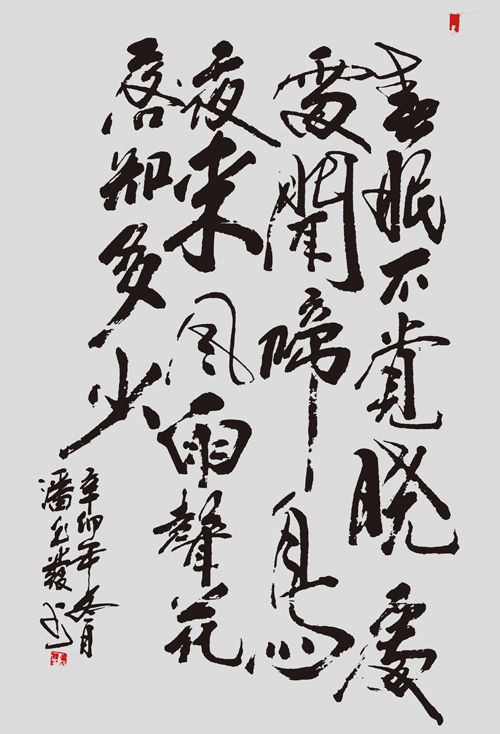 春眠不覺曉處
處聞啼鳥
夜来风雨聲花
落知多少
辛卯年冬月
潘發书